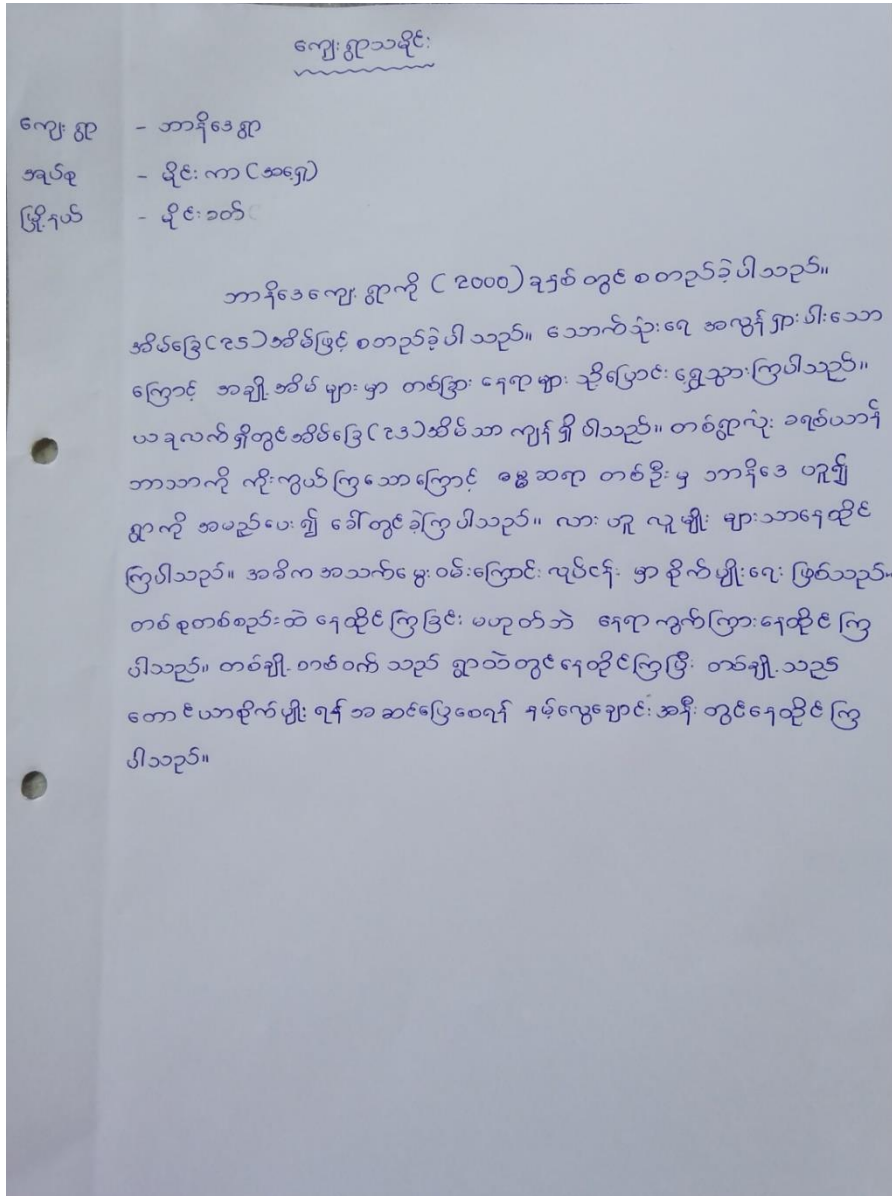 ကျေးရွာသမိုင်း
ကျေးရွာ - ဘာနိဒေရွာ
အုပ်စု - မိုင်းကာ (အရှေ့)
မြို့နယ် - မိုင်းခတ်
ဘာနိဒေကျေးရွာကို (2000) ခုနှစ်တွင် စတည်ခဲ့ပါသည်။
အိမ်ခြေ (25) အိမ်ဖြင့် စတည်ခဲ့ပါသည်။ သောက်သုံးရေ အလွန်ရှားပါးသော
ကြောင့် အချို့အိမ်များမှာ တစ်ခြားနေရာများသို့ပြောင်းရွှေ့သွားကြပါသည်။
ယခုလက်ရှိတွင်အိမ်ခြေ (23) အိမ်သာ ကျန်ရှိပါသည်။ တစ်ရွာလုံး ခရစ်ယာန်
ဘာသာကို ကိုးကွယ်ကြသောကြောင့် ဓမ္မဆရာ တစ်ဦးမှ ဘာနိဒေ ဟူ၍
ရွာကို အမည်ပေး၍ ခေါ်တွင်ခဲ့ကြပါသည်။ လားဟူ လူမျိုးများသာနေထိုင်
ကြပါသည်။ အဓိက အသက်မွေးဝမ်းကြောင်းလုပ်ငန်းမှာ စိုက်ပျိုးရေးဖြစ်သည်။
တစ်စုတစ်စည်းထဲ နေထိုင်ကြခြင်း မဟုတ်ဘဲ နေရာကွက်ကြားနေထိုင်ကြ
ပါသည်။ တစ်ချို့တစ်ဝက်သည် ရွာထဲတွင်နေထိုင်ကြပြီး တစ်ချို့သည်
တောင်ယာစိုက်ပျိုးရန် အဆင်ပြေစေရန် နမ့်လွေချောင်းအနီးတွင်နေထိုင်ကြ
ပါသည်။